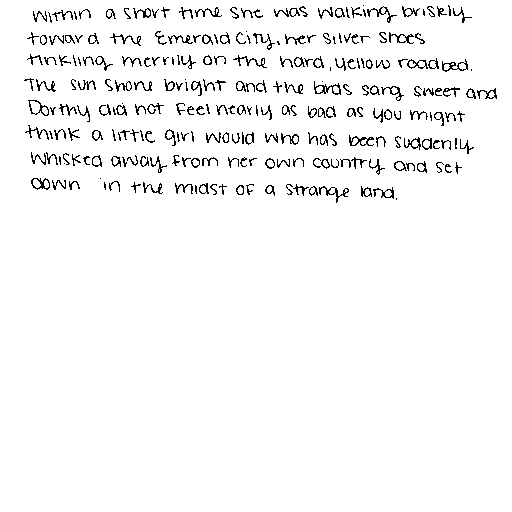 within a short time she was walking briskly
toward the Emerald City, her silver shoes
tinkling merrily on the hard, yellow roadbed.
The sun shone bright and the birds sang sweet and
Dorthy did not feel nearly as bad as you might
think a little girl would who has been suddenly
whisked away from her own country and set
down in the midst of a strange land.